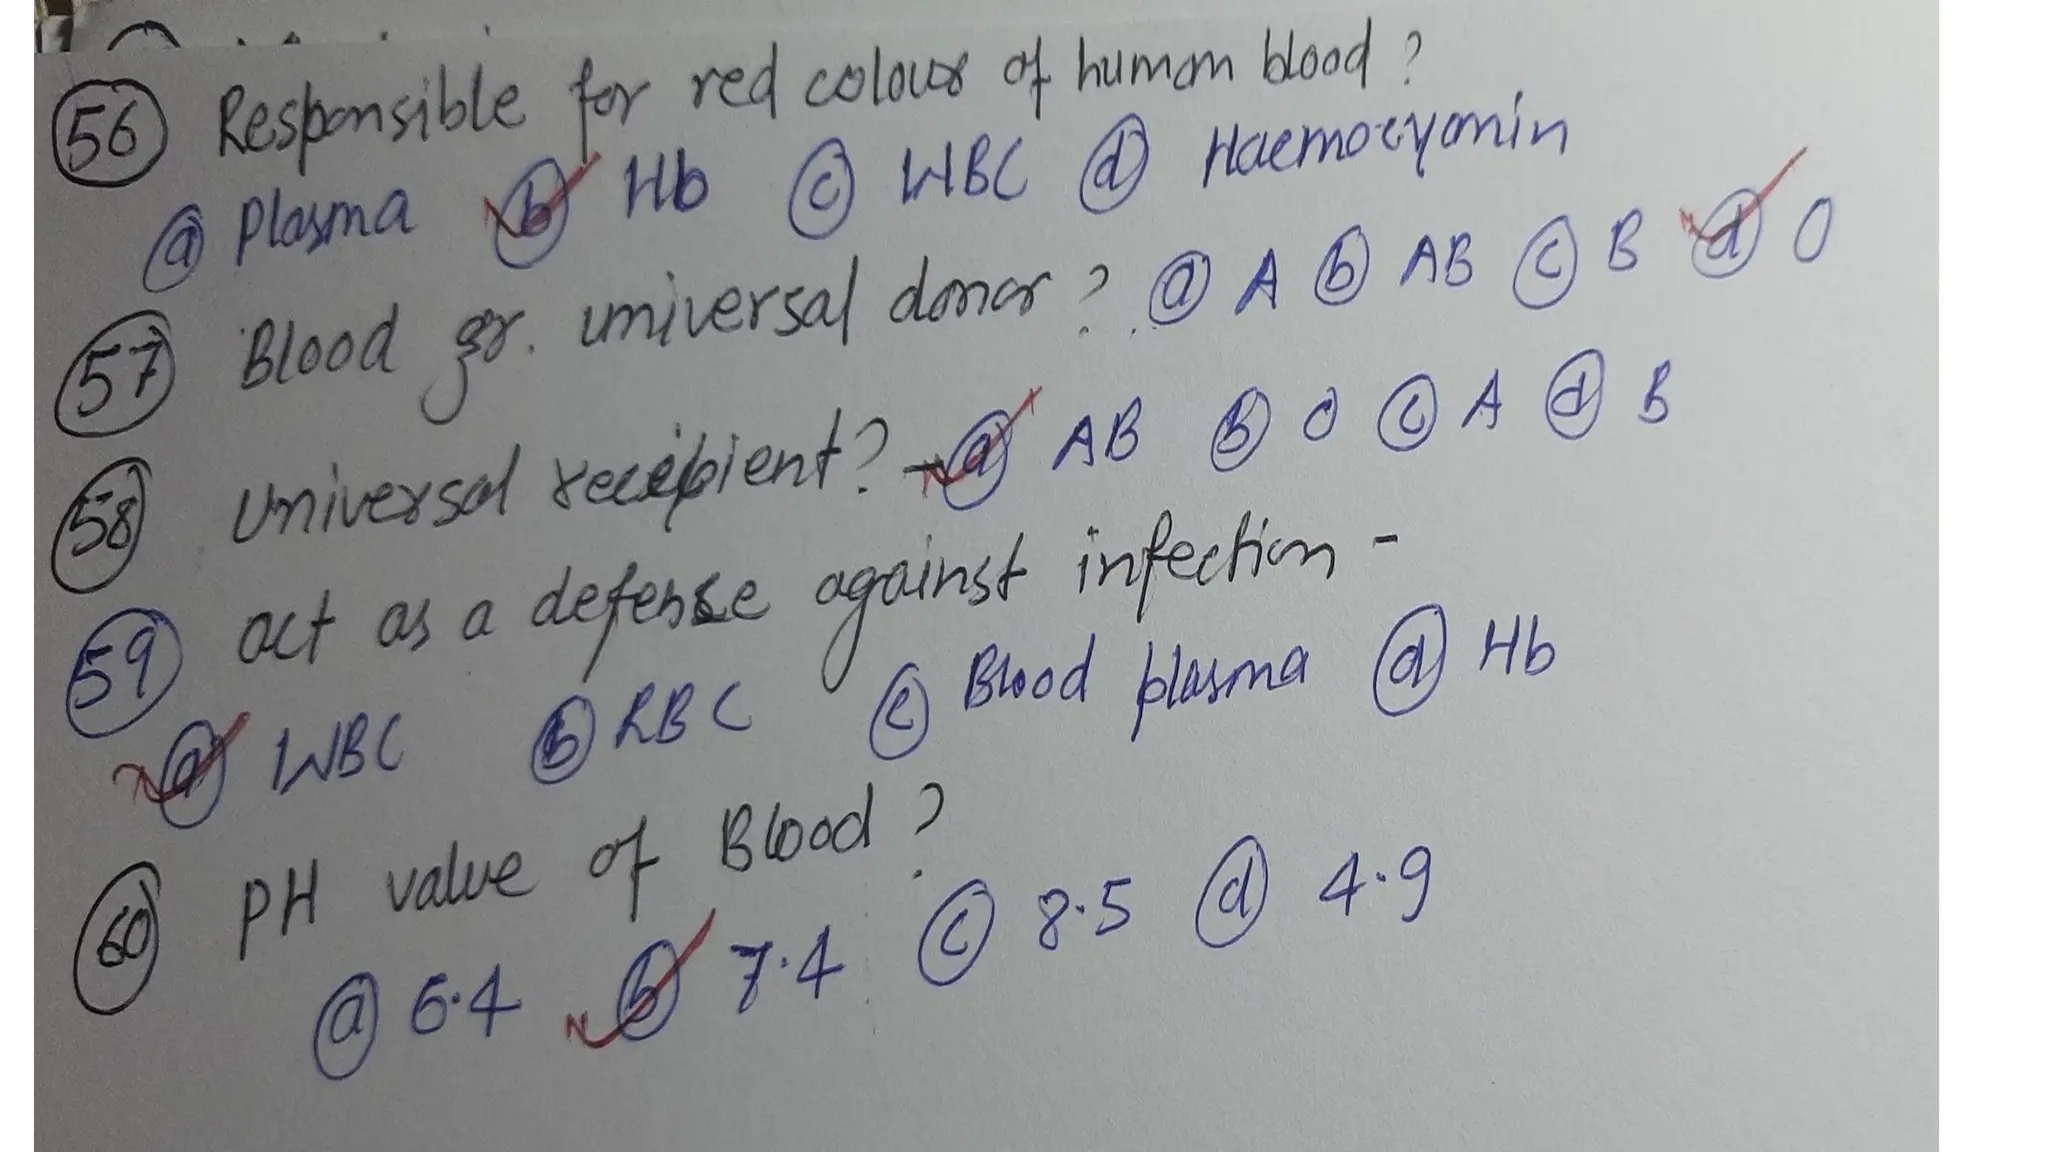 56 Responsible for red colour of human blood?
a Plasma b Hb c WBC d Haemocyanin
57 Blood gr. universal donor? a A b AB c B d O
58 Universal recipient? - a AB b O c A d B
59 act as a defense against infection -
a WBC b RBC c Blood plasma d Hb
60 PH value of Blood?
a 6.4 b 7.4 c 8.5 d 4.9